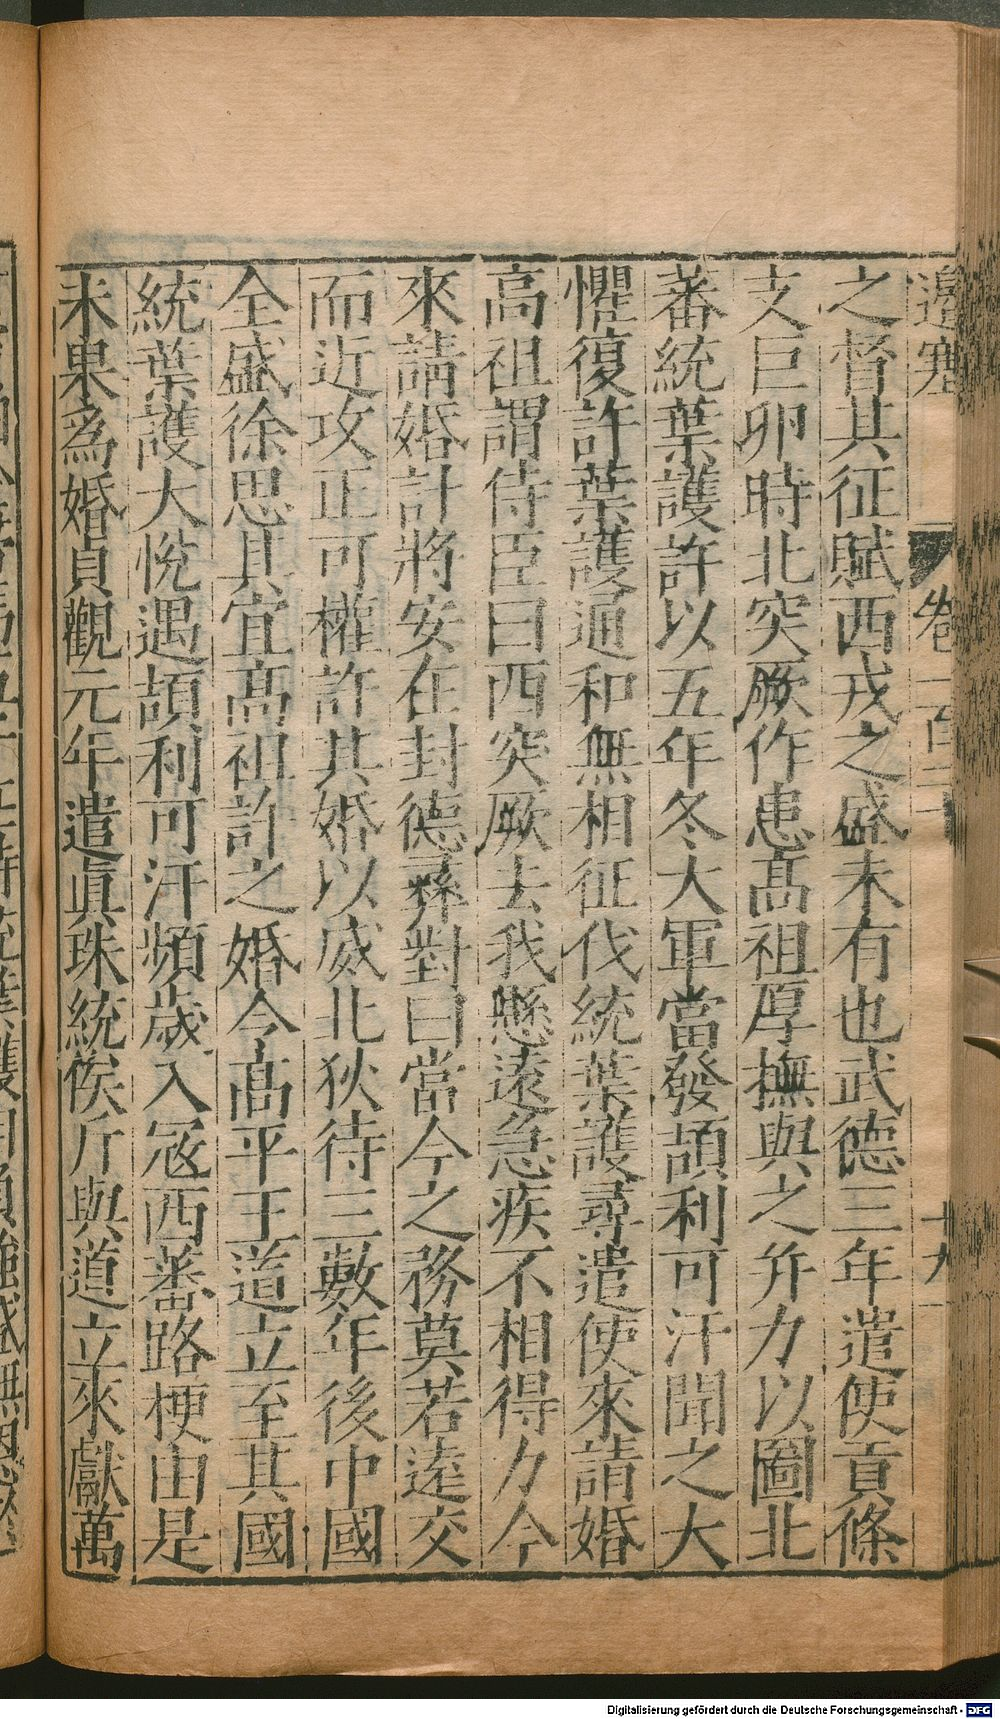 邊塞 卷一百二十 十九
之督其征賦西戎之盛未有也武德三年遣使貢條
支巨卵時北突厥作患髙祖厚撫與之并力以圖北
蕃統葉護許以五年冬大軍當發頡利可汗聞之大
懼復許葉護通和無相征伐統葉護尋遣使來請婚
高祖謂侍臣曰西突厥去我懸遠急疾不相得力今
來請婚計將安在封德彝對曰當今之務莫若遠交
而近攻正可權許其婚以威北狄待三數年後中國
全盛徐思其宜髙祖許之婚令高平王道立至其國
統葉護大悅遇頡利可汗頻歲入寇西蕃路梗由是
未果爲婚貞觀元年遣眞珠統俟斤與道立來獻萬
Digitalisierung gefördert durch die Deutsche Forschungsgemeinschaft - DFG